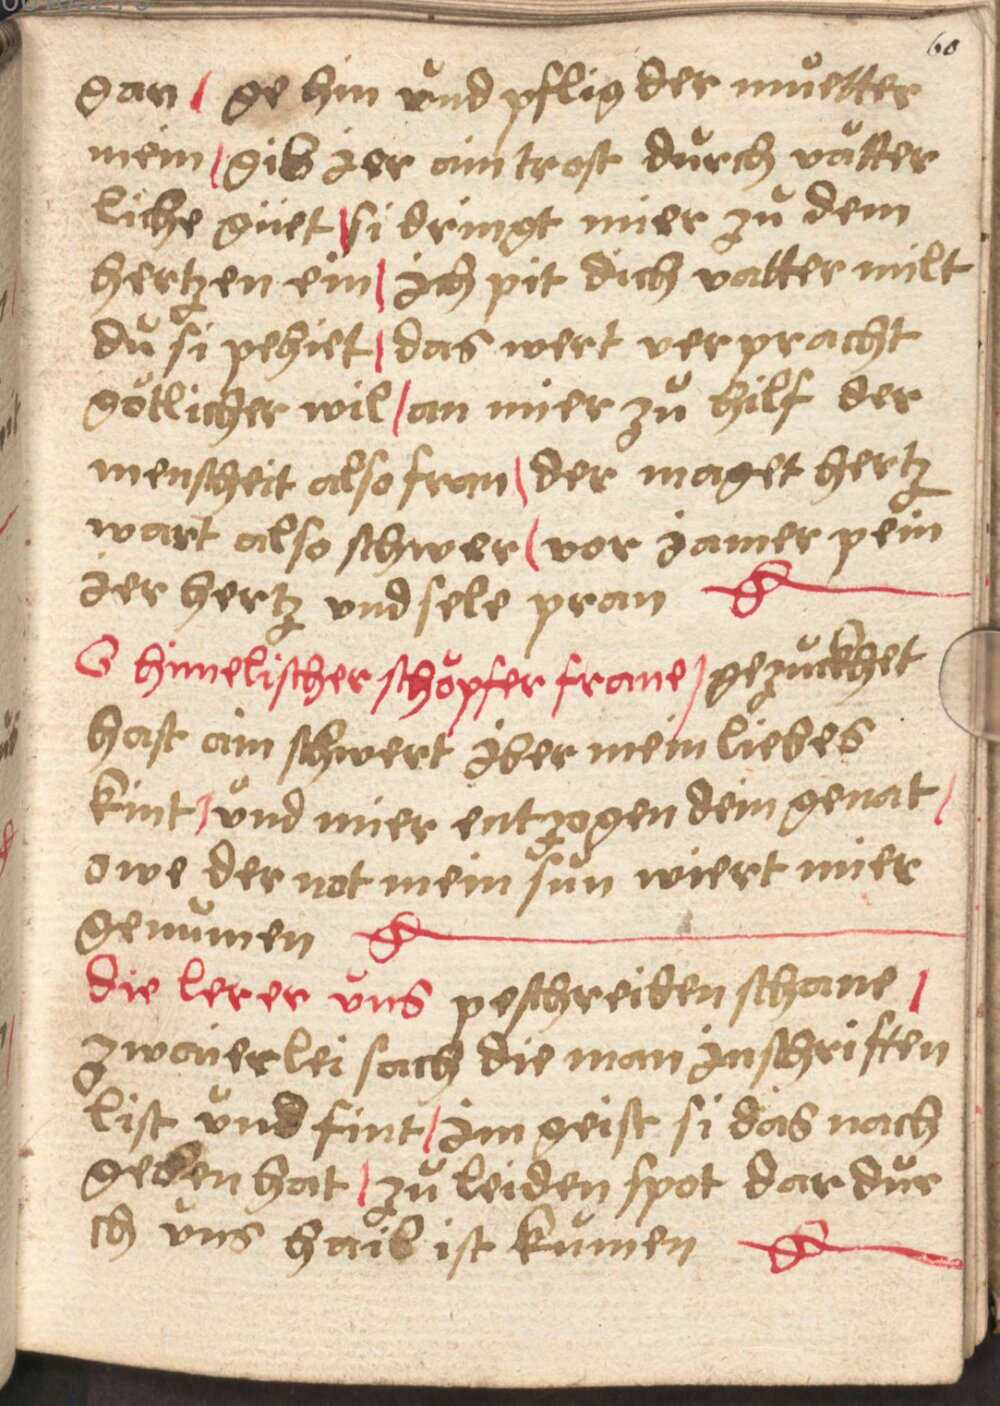 60
gan / ge hin vnd pflig der muetter
mein / gib ier ain trost durch vätter
liche güet / si dringt mier zu dem
hertzen ein / ich pit dich vatter milt
du si pehiet / das wert verpracht
gotlicher wil / an mier zu hilf der
menscheit also fran / der maget hertz
wart also schwer / vor iamer pein
ier hertz vnd sele pran
O himelischer schöpfer frane / gezuckhet
hast ain schwert iber mein liebes
kint / vnd mier entzogen dein genat /
owe der not mein sun wiert mier
genumen
die lerer vns peschreiben schane /
zwaierlei sach die man in schriften
list vnd fint / im geist si das nach
geben hat / zu leiden spot dar dur
ch vns hail ist kumen